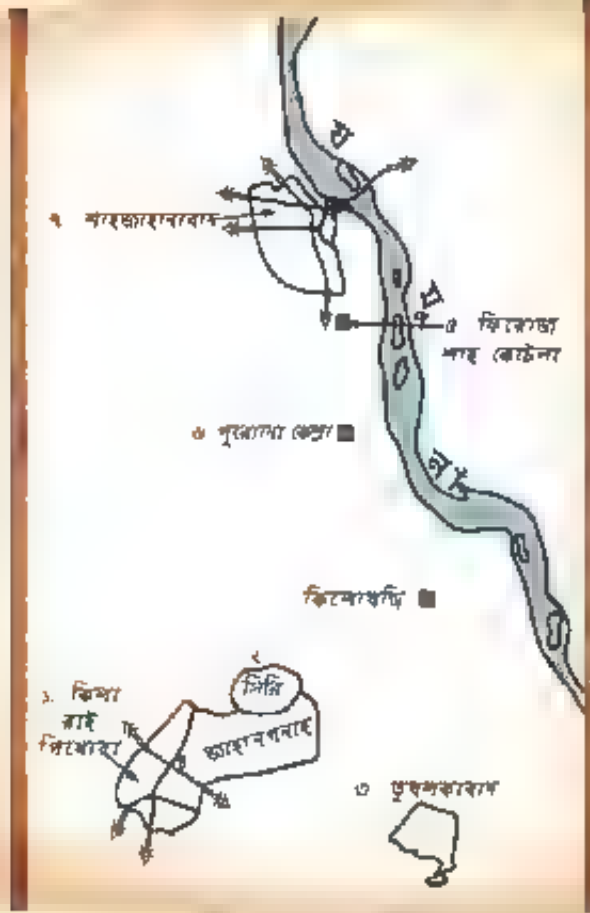 য
মু
না
৭ শাহজাহানাবাদ
৫ ফিরোজা
শাহ কোটলা
৬ পুরোনো কেল্লা
কিলোখড়ি
২
সিরি
১. কিলা
রাই
পিথোরা
জাহানপনাহ
৩ তুঘলকাবাদ